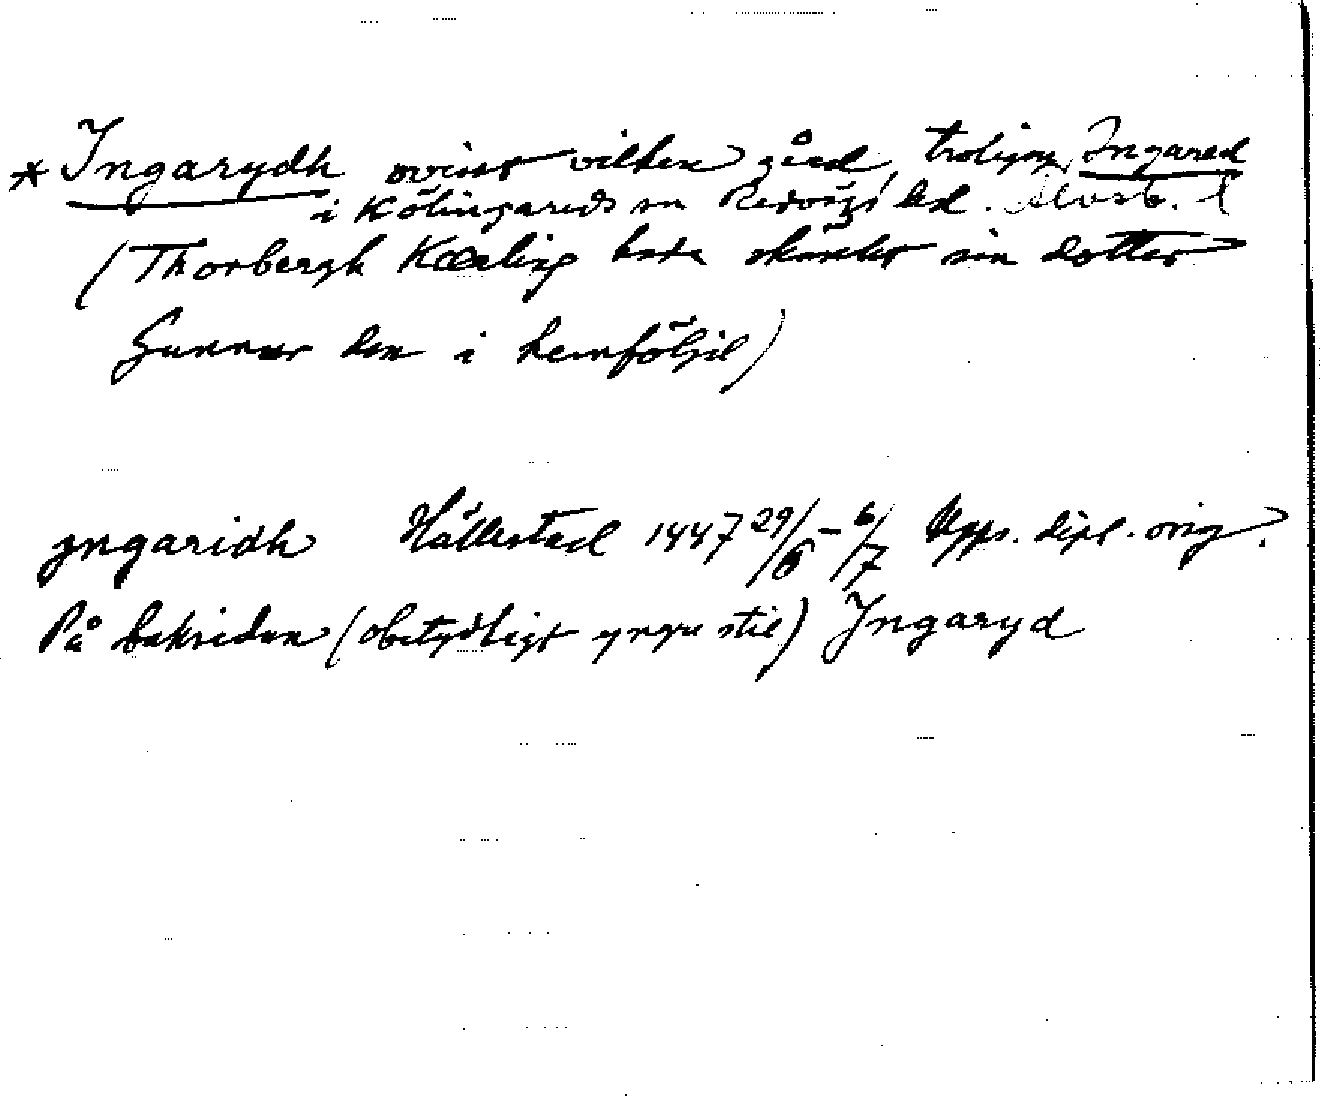 * Ingarydh ovisst vilken gård, troligen Ingared
i Kölingareds sn Redvägs hd. Älvsb. l
(Thorbergh Kæling hade skänkt sin dotter
Gunnur den i hemföljd)
yngaridh Hällestad 1447 29/6 – 6/7 Upps. dipl. orig.
På baksidan (obetydligt yngre stil) Ingaryd